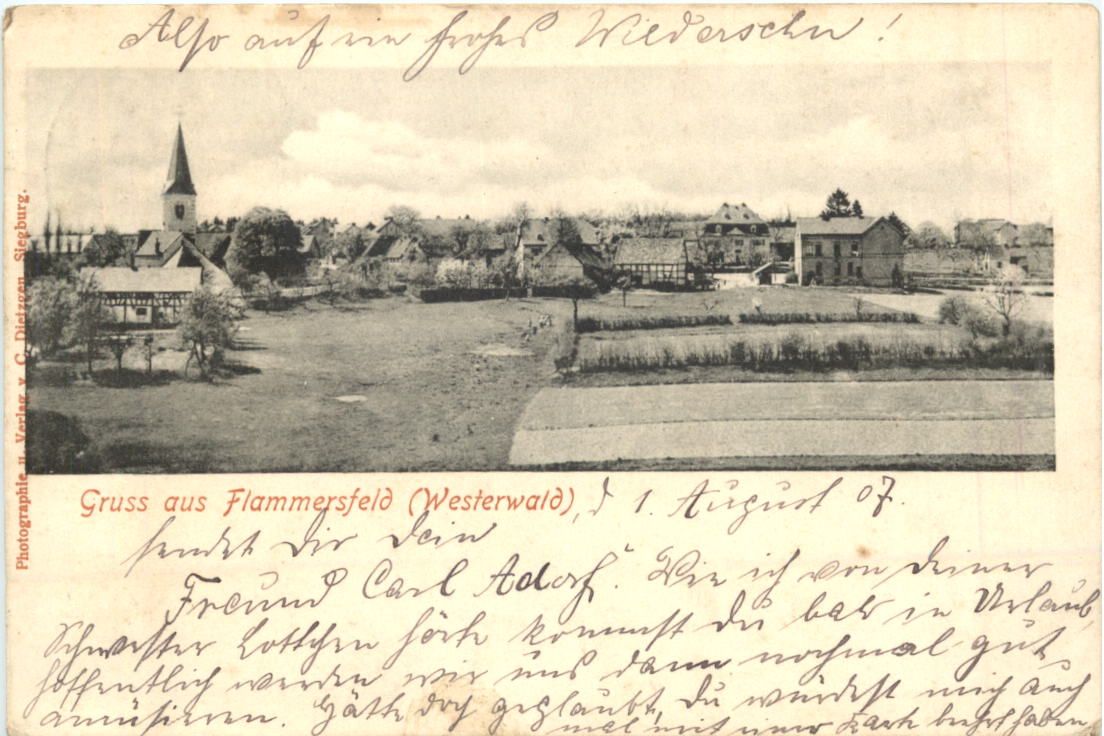 Also auf ein frohes Wiedersehn!
Photographie u. Verlag v. C. Dietzgen, Siegburg.
Gruss aus Flammersfeld (Westerwald), d 1. August 07.
sendet Dir Dein
Freund Carl Adorf. Wie ich von Deiner
Schwester Lottchen hörte kommst Du bald in Urlaub,
hoffentlich werden wir uns dann nochmal gut
amüsieren. Hätte doch geglaubt, Du würdest mich auch
mal mit einer Karte beehrt haben